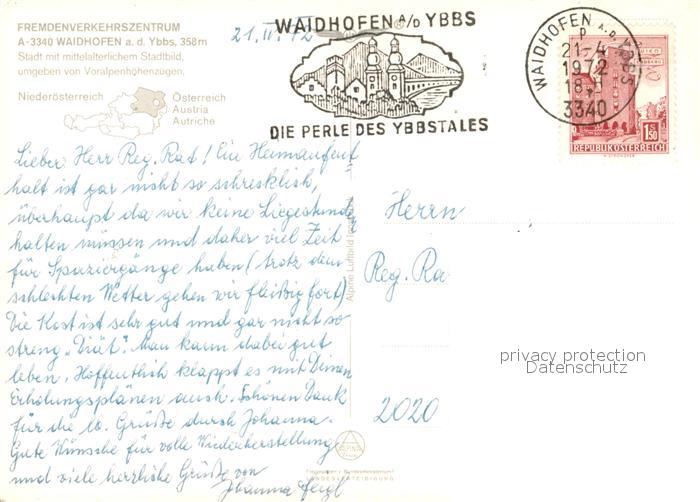 FREMDENVERKEHRSZENTRUM
A-3340 WAIDHOFEN a. d. Ybbs, 358m
Stadt mit mittelalterlichem Stadtbild,
umgeben von Voralpenhöhenzügen,
Niederösterreich
Österreich
Austria
Autriche
WAIDHOFEN A/D YBBS
DIE PERLE DES YBBSTALES
WAIDHOFEN A. D. YBBS
P
21-4
1972
18
3340
1.50
REPUBLIK ÖSTERREICH
Lieber Herr Reg. Rat! Ein
halt ist gar nicht so schrecklich,
überhaupt da wir keine Liegestunden
halten müssen und daher viel Zeit
für Spaziergänge haben (trotz dem
schlechten Wetter gehen wir fleißig fort)
Die Kost ist sehr gut und gar nicht so
streng „Diät". Man kann dabei gut
leben. Hoffentlich klappt es mit Deinen
Erholungsplänen auch. Schönen Dank
für die lb. Grüße durch Johanna.
Gute Wünsche für volle Wiederherstellung
und viele herzliche Grüße von
Johanna
Alpine Luftbild
Herrn
Reg. Ra
2020
privacy protection
Datenschutz
ALPINE